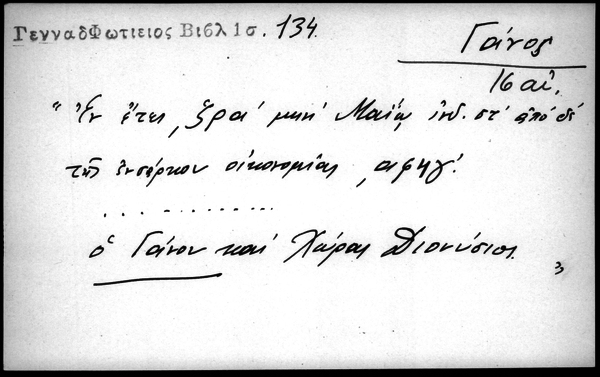 ΓενναδΦωτιειος Βιβλ 1σ. 134
Γάνος
16 αἰ.
"Ἐν ἔτει ͵ζρα' μηνὶ Μαΐῳ ἰνδ. στ' ἀπὸ δὲ
τῆς ἐνσάρκου οἰκονομίας ͵αφηγ'.
..............
ὁ Γάνου καὶ Χώρας Διονύσιος
3